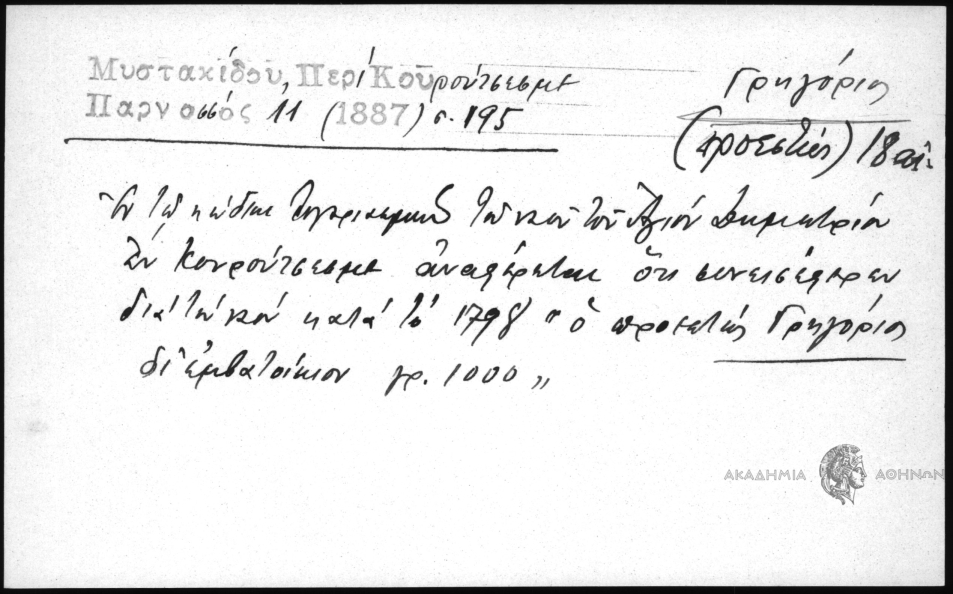 Μυστακίδου, Περί Κουρούτσεσμε
Παρνασσός 11 (1887) σ. 195
Γρηγόριος
(προεστώς) 18 αἰ.
Ἐν τῷ κώδικι τοῦ ναοῦ τοῦ Ἁγίου Δημητρίου
ἐν Κουρούτσεσμε ἀναφέρεται ὅτι συνεισέφερεν
διὰ τὸν ναόν κατά τό 1798 "ὁ προεστώς Γρηγόριος
δι' ἐμβατοίκιον γρ. 1000"
ΑΚΑΔΗΜΙΑ ΑΘΗΝΩΝ